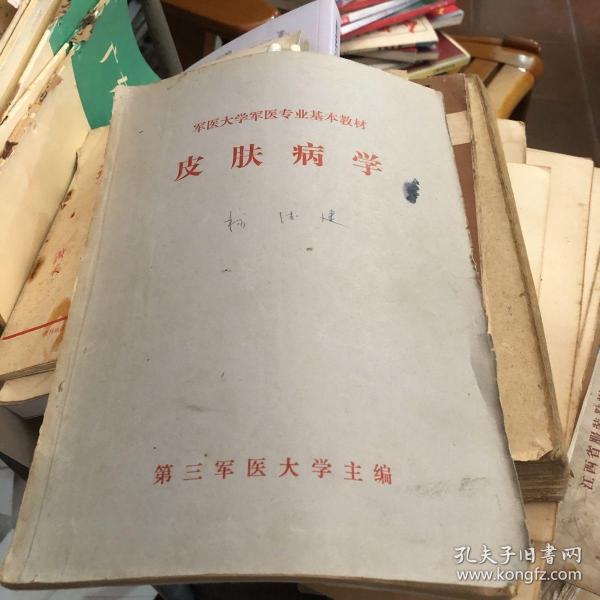 军医大学军医专业基本教材
皮肤病学
第三军医大学主编
江西省服装
孔夫子旧书网
www.kongfz.com